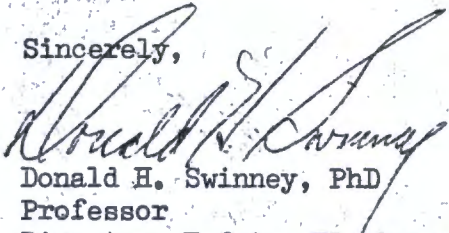 Sincerely,
Donald H. Swinney
Donald H. Swinney, PhD
Professor